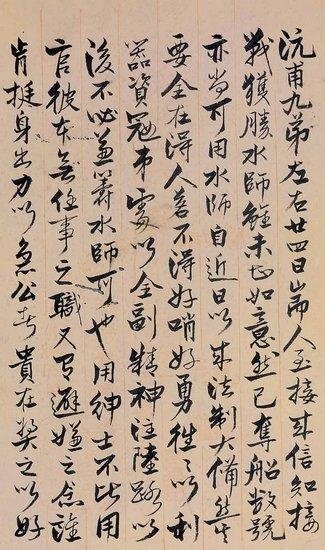 沅甫九弟左右廿四日崙人至接來信知接
戰獲勝水師雖未甚如意然已奪船數號
亦尚可用水師自近日以來法制大備然其
要全在得人若不得好哨好勇往往以利
器資寇弟處以全副精神注陸路以
後不必兼籌水師可也用紳士不比用
官彼本無任事之職又有避嫌之念誰
肯挺身出力以急公者貴在獎之以好